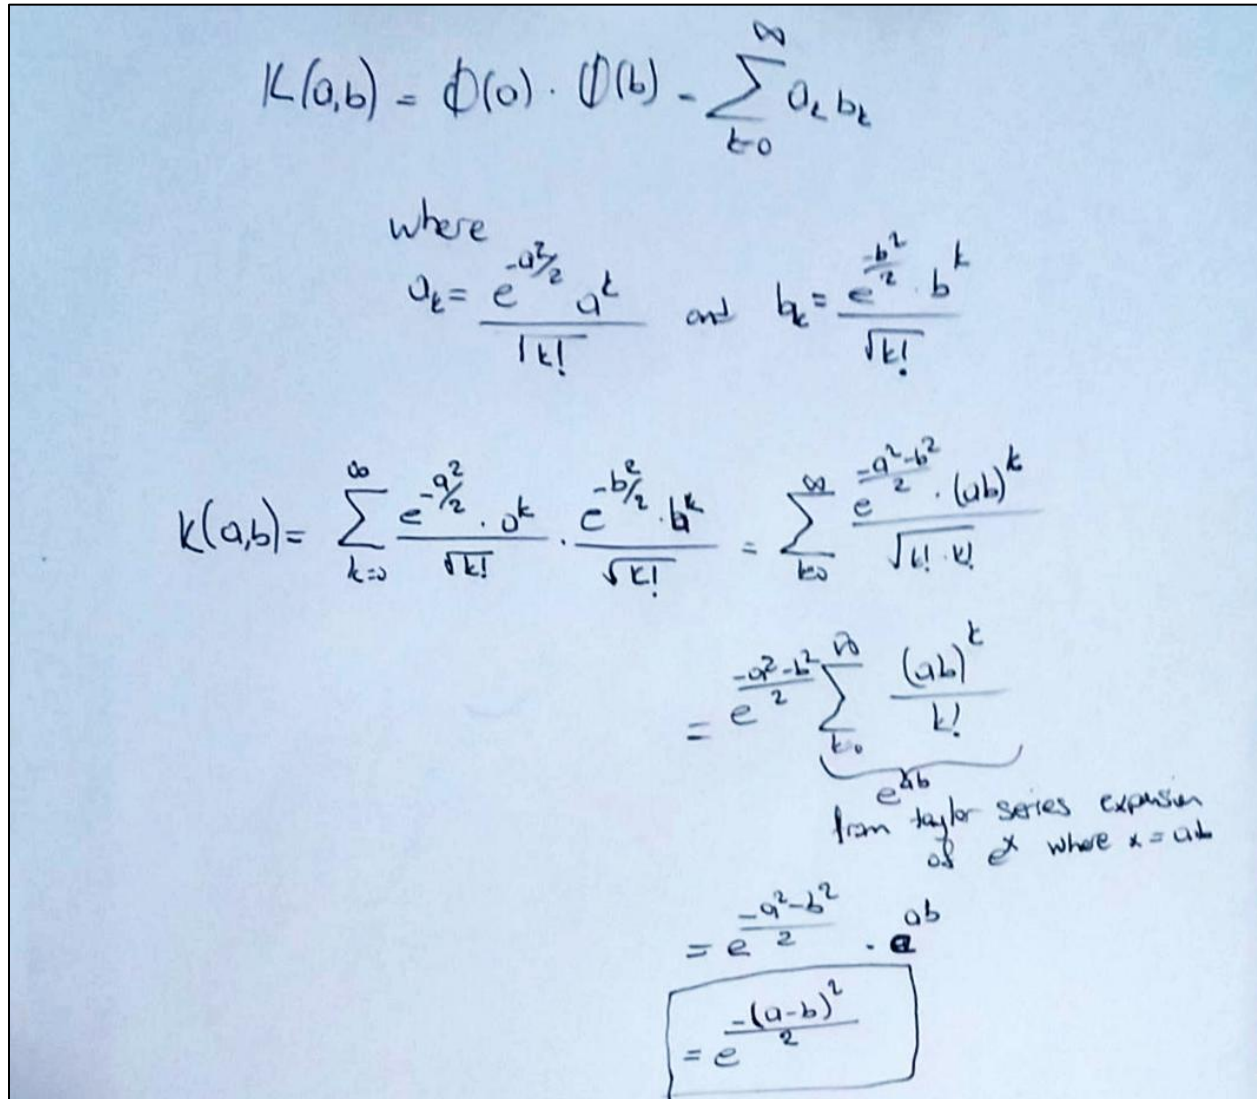 K(a,b) = Φ(a) · Φ(b) = ∑_{k=0}^{∞} a_k b_k
where
a_k = \frac{e^{-a^2/2} a^k}{\sqrt{k!}} and b_k = \frac{e^{\frac{-b^2}{2}} · b^k}{\sqrt{k!}}
K(a,b) = ∑_{k=0}^{∞} \frac{e^{-a^2/2} · a^k}{\sqrt{k!}} · \frac{e^{-b^2/2} · b^k}{\sqrt{k!}} = ∑_{k=0}^{∞} \frac{e^{\frac{-a^2-b^2}{2}} · (ab)^k}{\sqrt{k! · k!}}
= e^{\frac{-a^2-b^2}{2}} ∑_{k=0}^{∞} \frac{(ab)^k}{k!}
e^{ab}
from taylor series expansion
of e^x where x = ab
= e^{\frac{-a^2-b^2}{2}} · e^{ab}
= e^{\frac{-(a-b)^2}{2}}